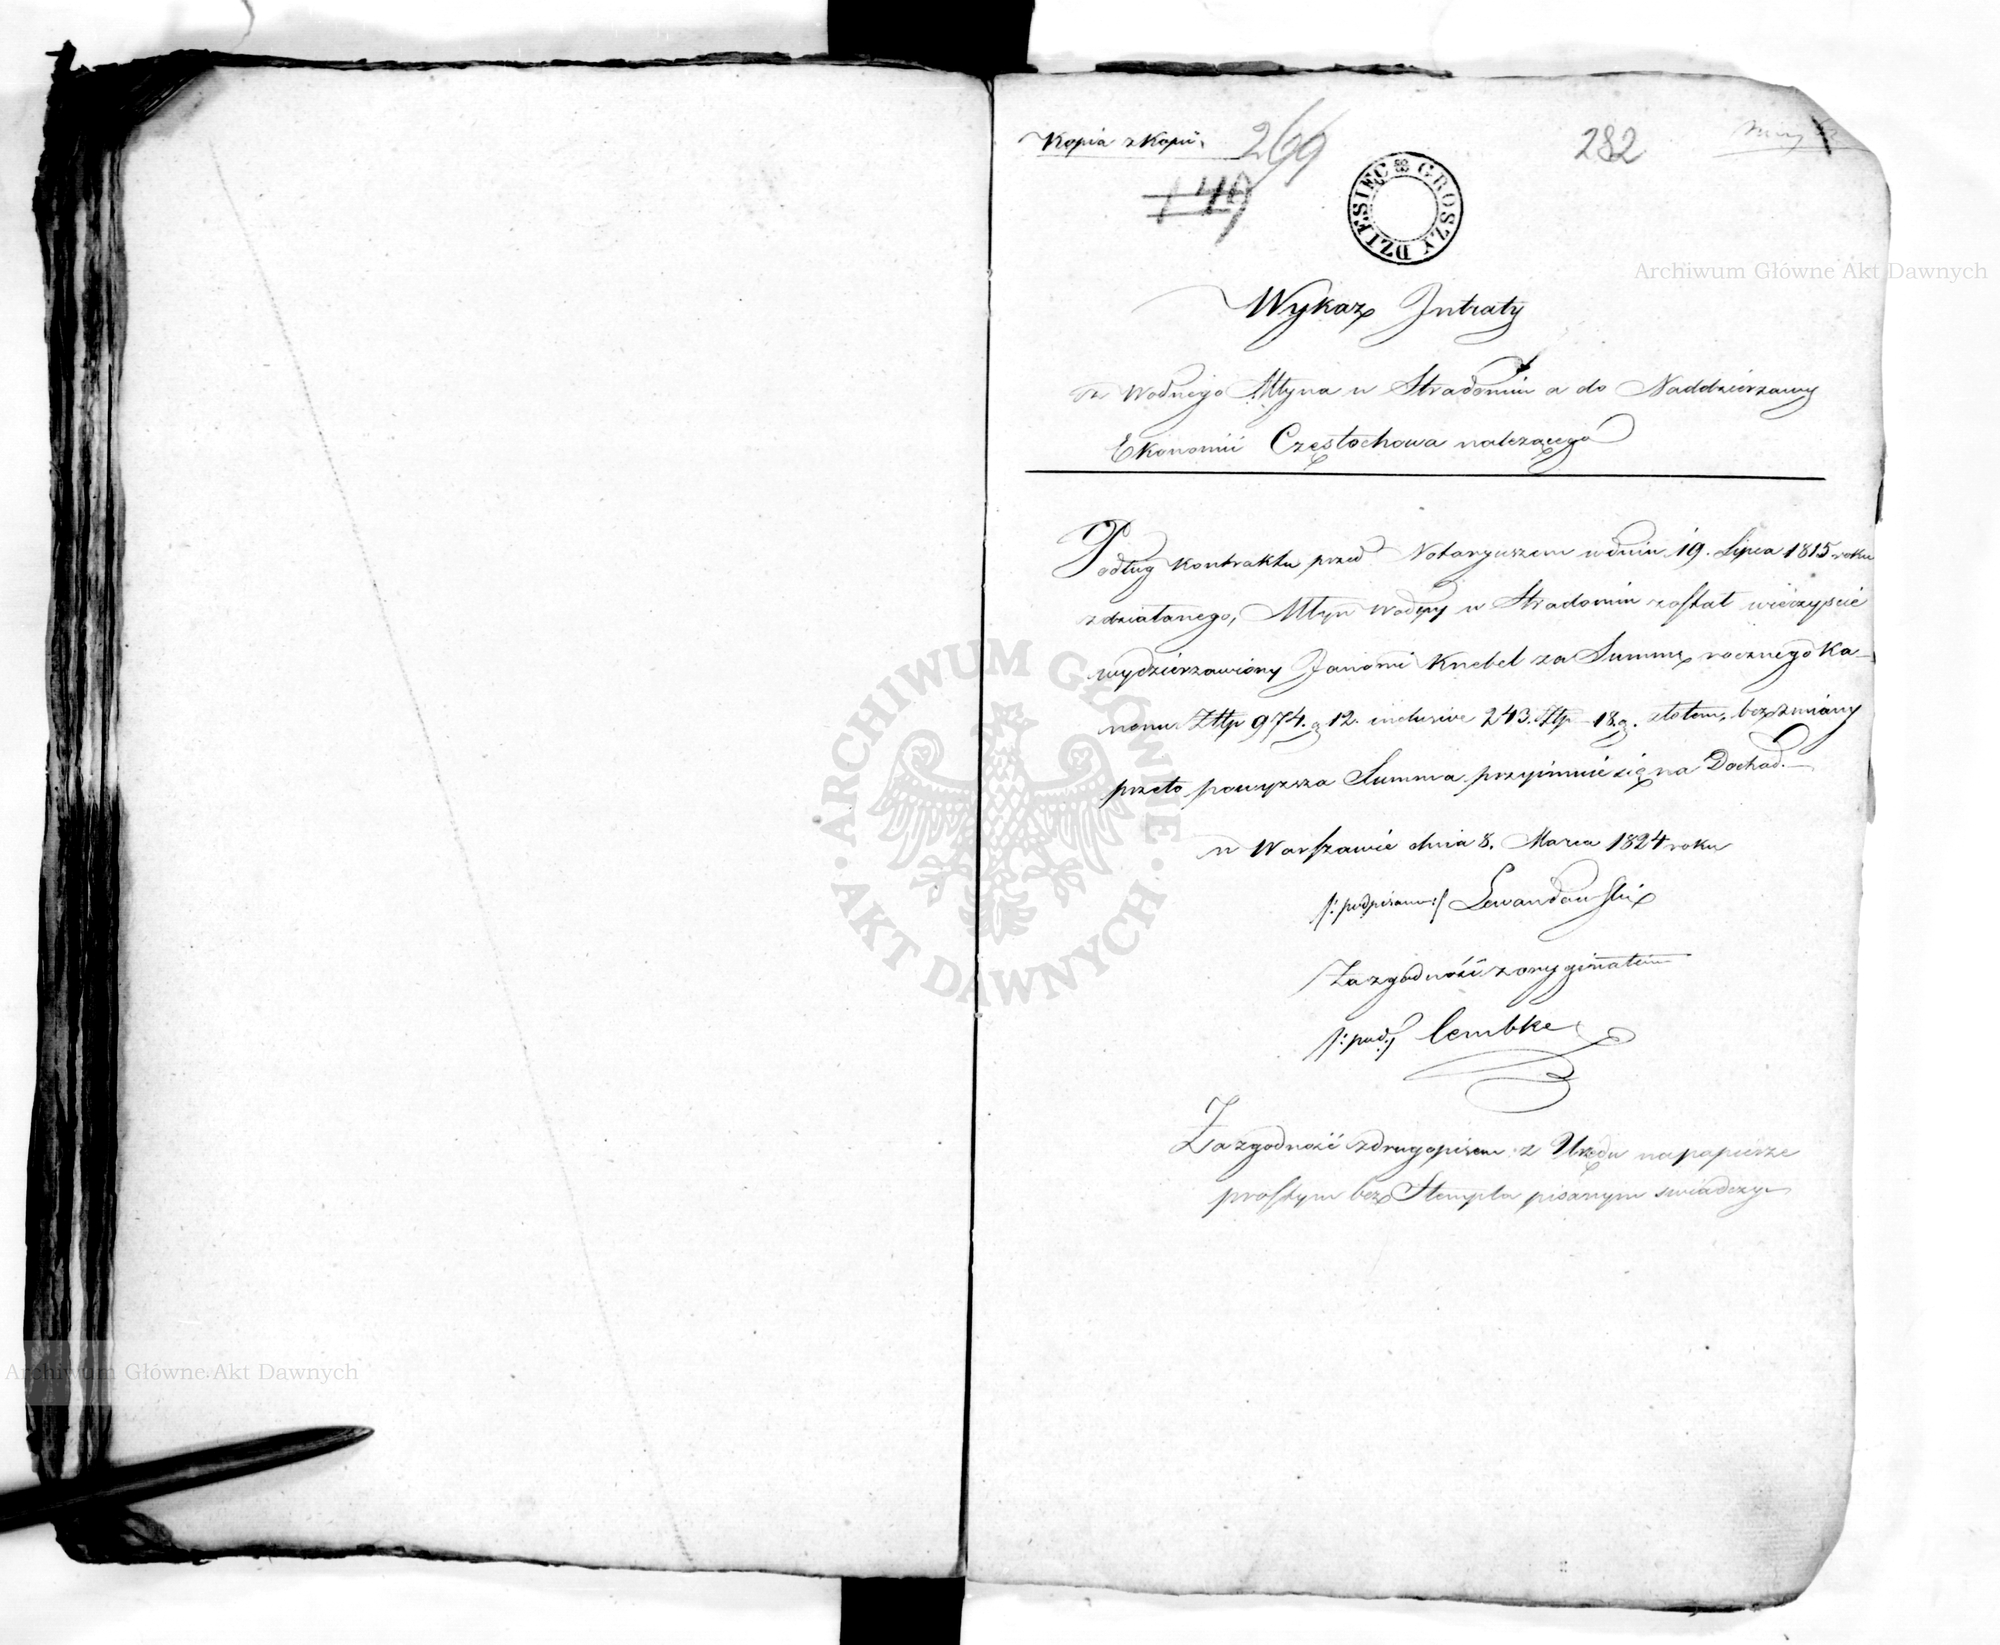 Kopia z Kopii.
269
282
149
DZIESIĘC GROSZY
Wykaz Intraty
z Wodnego Młyna w Stradomiu a do Naddzierzawy
Ekonomii Częstochowa należącego
Podług Kontraktu przed Notaryuszem w dniu 19. Lipca 1815 roku
zdziałanego, Młyn Wodny w Stradomiu został wieczyście
wydzierzawiony Janowi Knebel za Summę rocznego Ka-
nonu Złłp 974. g 12. inclusive 243. Złp 18 g. złotem, bez zmiany
przeto powyzsza Summa przyimuie się na Dochod.
w Warszawie dnia 8. Marca 1824 roku
/: podpisano :/ Lewandowski
Za zgodność z oryginałem
/: pod :/ Lembke
Za zgodność z drugopisem z Urzędu na papierze
prostym bez Stempla pisanym swiadczy
Archiwum Główne Akt Dawnych
ARCHIWUM GŁÓWNE AKT DAWNYCH
Archiwum Główne Akt Dawnych